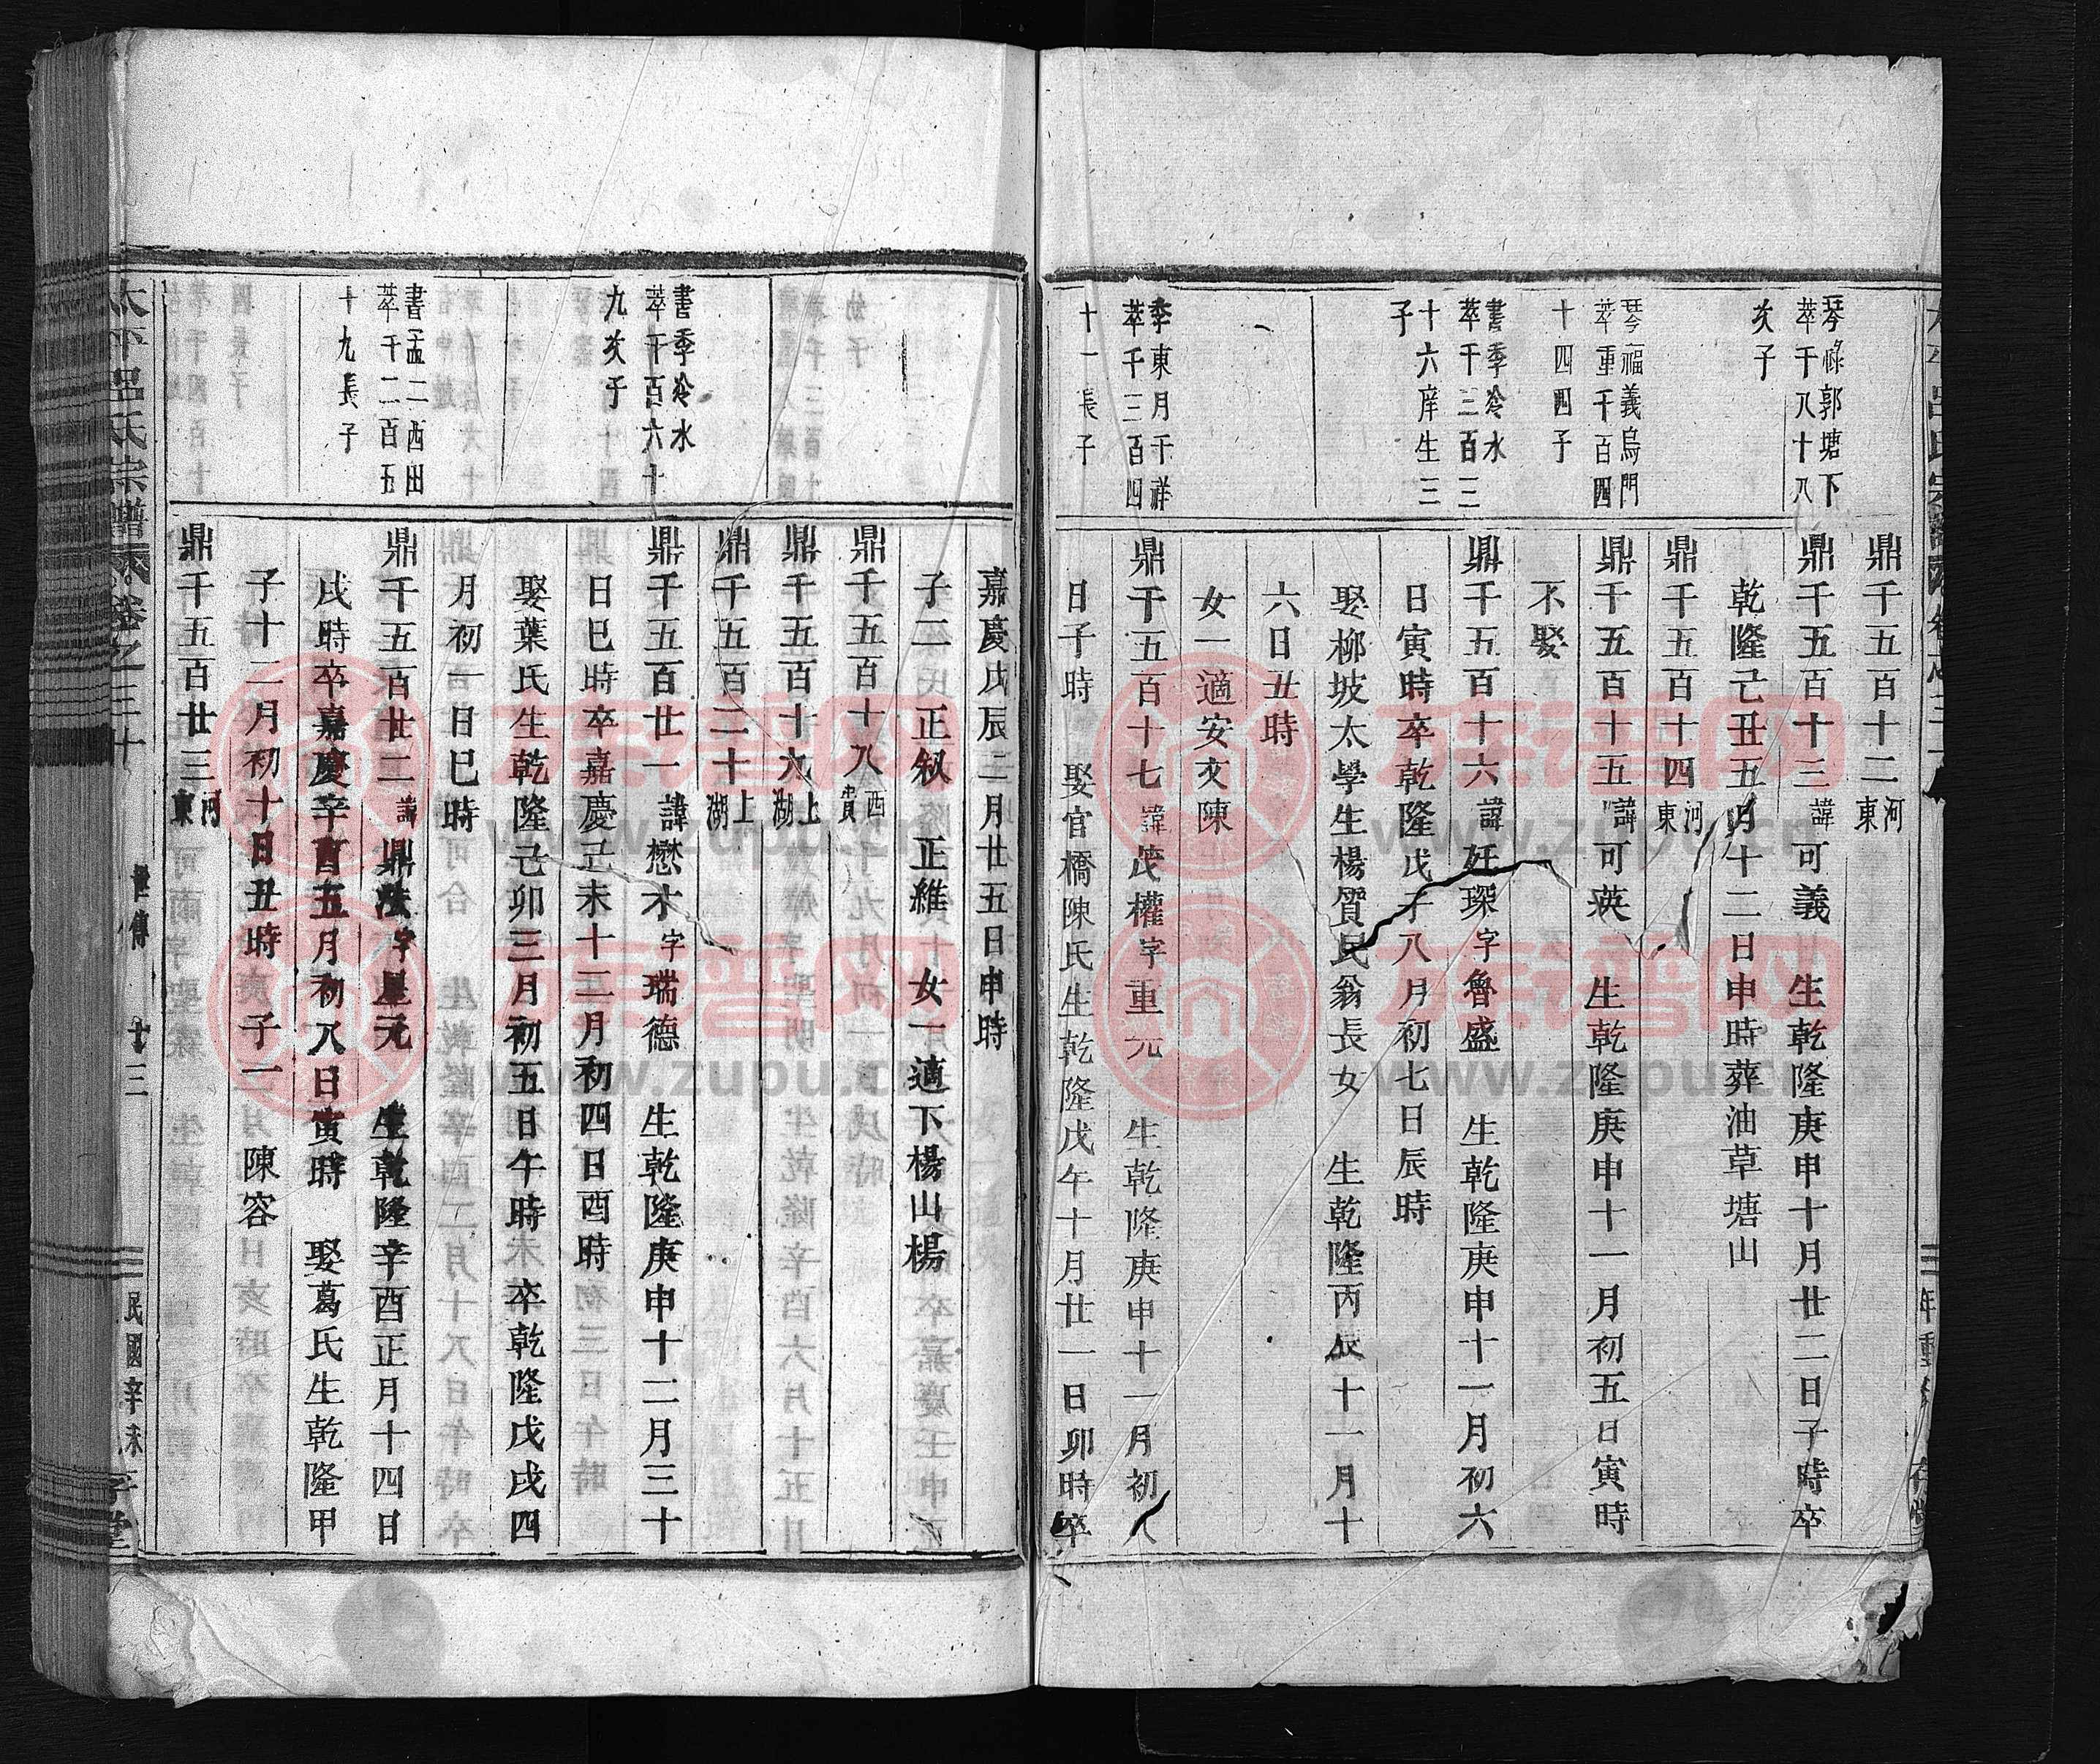 琴祿郭塘下
萃千八十八
次子
琴福義烏門
萃重千百四
十四四子
書季冷水
萃千三百三
十六庠生三
子
季東月千祥
萃千三百四
十一長子
鼎千五百十二河東
鼎千五百十三諱可義 生乾隆庚申十月廿二日子時卒
乾隆己丑五月十二日申時葬油草塘山
鼎千五百十四河東
鼎千五百十五諱可英 生乾隆庚申十一月初五日寅時
不娶
鼎千五百十六諱廷琛字魯盛 生乾隆庚申十一月初六
日寅時卒乾隆戊子八月初七日辰時
娶柳坡太學生楊質民翁長女 生乾隆丙辰十一月十
六日丑時
女一適安文陳
鼎千五百十七諱茂權字重元 生乾隆庚申十一月初八
日子時 娶官橋陳氏生乾隆戊午十月廿一日卯時卒
書季冷水
萃千百六十
九次子
書孟二西田
萃千二百五
十九長子
嘉慶戊辰二月廿五日申時
子二 正叙 正維 女一適下楊山楊
鼎千五百十八西貴
鼎千五百十九上湖
鼎千五百二十上湖
鼎千五百廿一諱懋才字瑞德 生乾隆庚申十二月三十
日巳時卒嘉慶己未十二月初四日酉時
娶葉氏生乾隆己卯三月初五日午時卒乾隆戊戌四
月初一日巳時
鼎千五百廿二諱鼎法字星元 生乾隆辛酉正月十四日
戌時卒嘉慶辛酉五月初八日寅時 娶葛氏生乾隆甲
子十二月初十日丑時 子一 陳容
鼎千五百廿三河東
太平呂氏宗譜 卷之三十 世傳 十三 民國辛未 堂
族谱网
www.zupu.cn
族谱网
www.zupu.cn
族谱网
www.zupu.cn
族谱网
www.zupu.cn